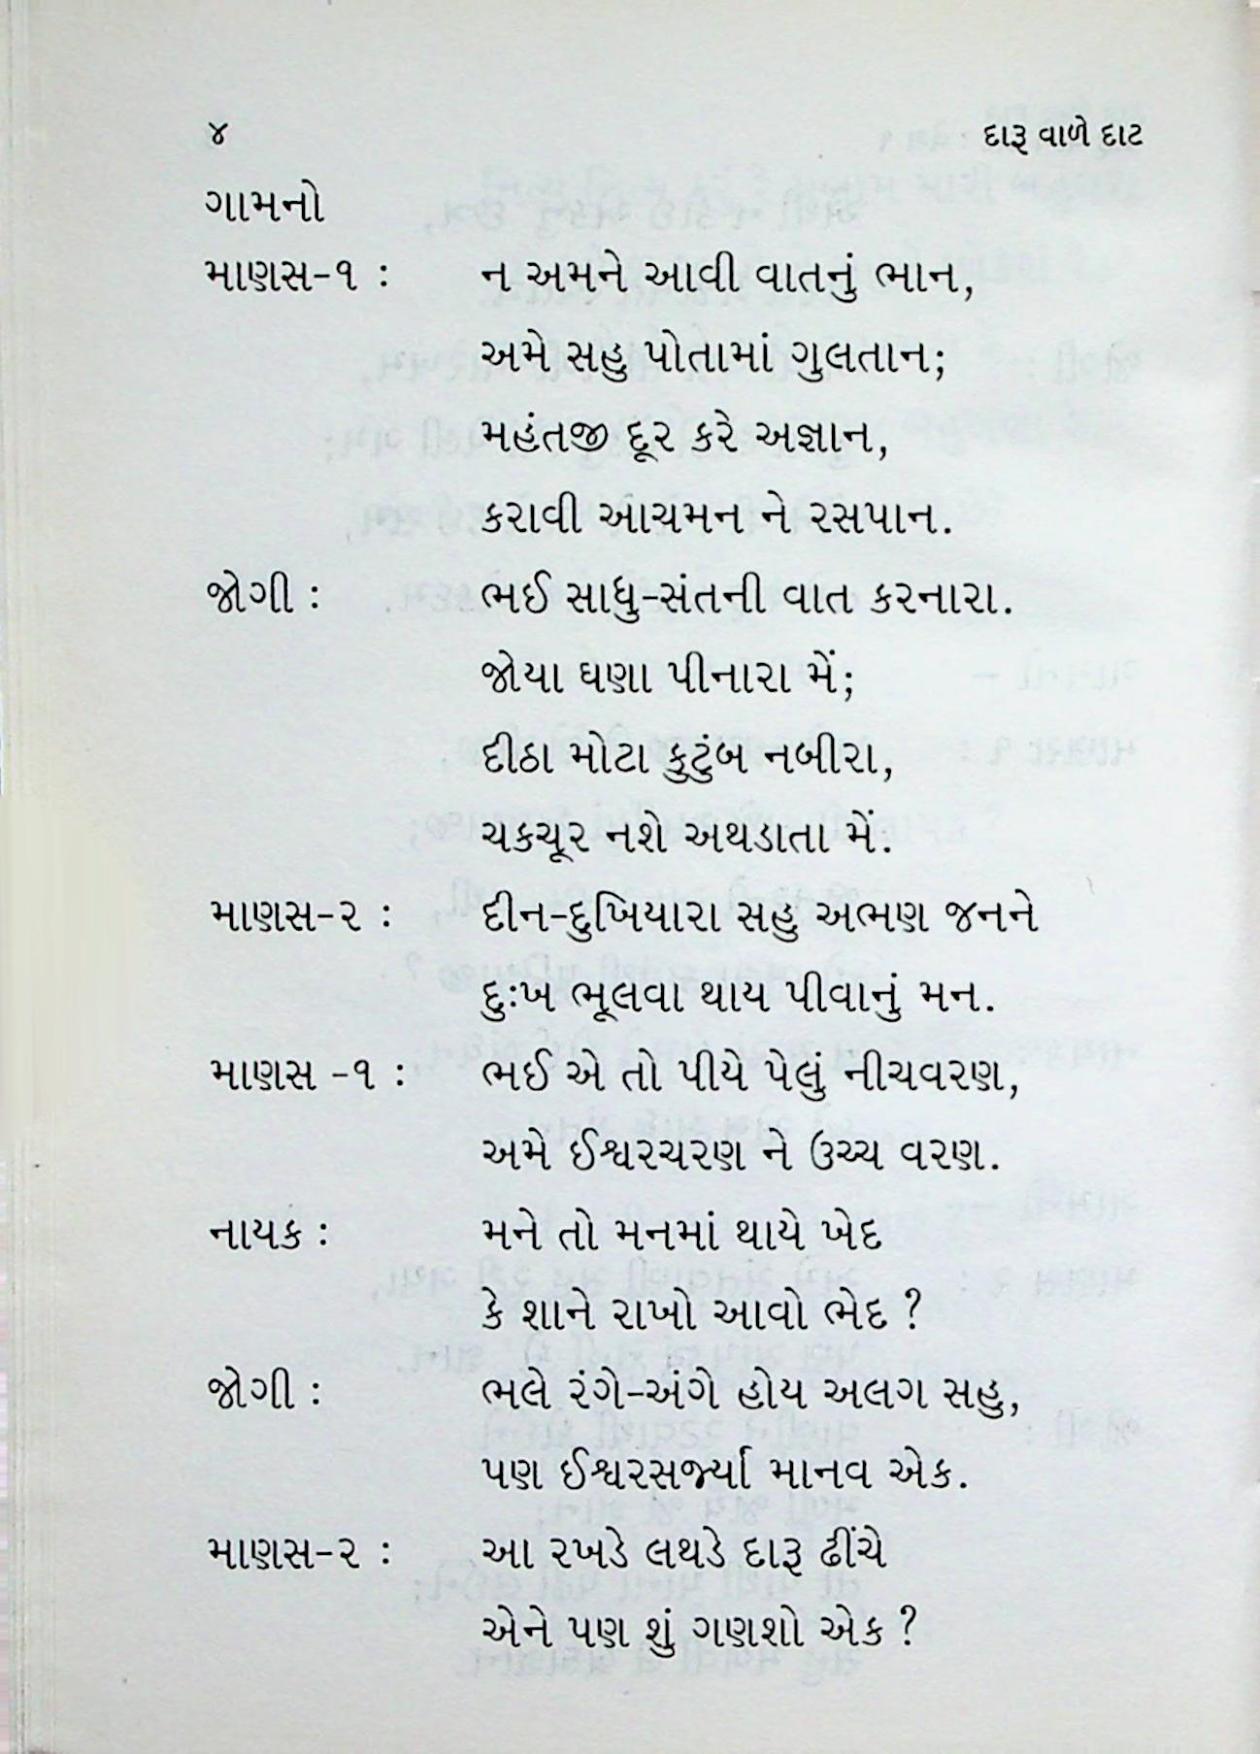 ૪ દારૂ વાળે દાટ
ગામનો
માણસ-૧ : ન અમને આવી વાતનું ભાન,
અમે સહુ પોતામાં ગુલતાન;
મહંતજી દૂર કરે અજ્ઞાન,
કરાવી આચમન ને રસપાન.
જોગી : ભઈ સાધુ-સંતની વાત કરનારા.
જોયા ઘણા પીનારા મેં;
દીઠા મોટા કુટુંબ નબીરા,
ચકચૂર નશે અથડાતા મેં.
માણસ-૨ : દીન-દુખિયારા સહુ અભણ જનને
દુઃખ ભૂલવા થાય પીવાનું મન.
માણસ -૧ : ભઈ એ તો પીયે પેલું નીચવરણ,
અમે ઈશ્વરચરણ ને ઉચ્ચ વરણ.
નાયક : મને તો મનમાં થાયે ખેદ
કે શાને રાખો આવો ભેદ ?
જોગી : ભલે રંગે-અંગે હોય અલગ સહુ,
પણ ઈશ્વરસર્જ્યા માનવ એક.
માણસ-૨ : આ રખડે લથડે દારૂ ઢીંચે
એને પણ શું ગણશો એક ?